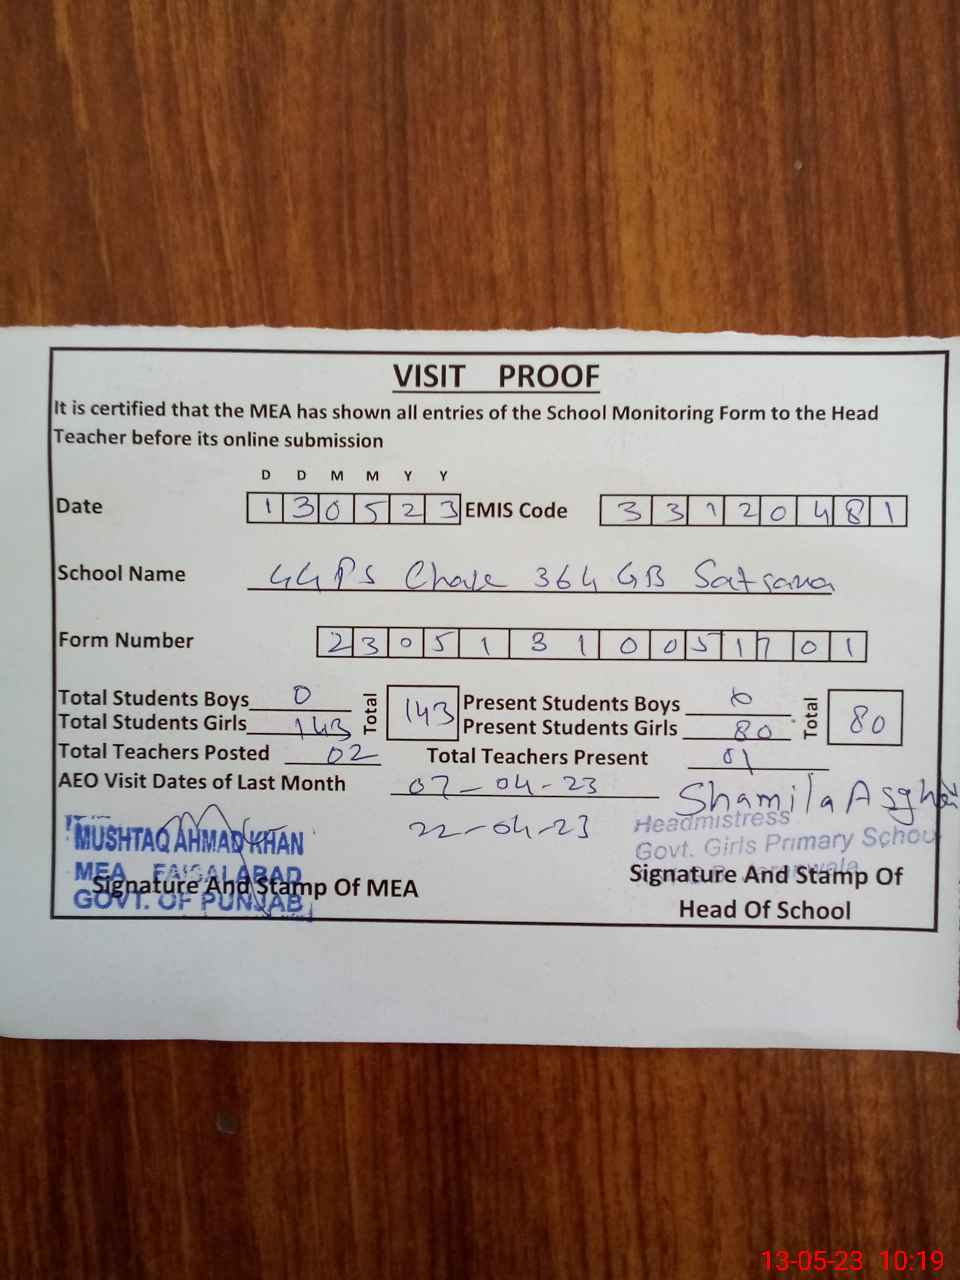 VISIT PROOF
It is certified that the MEA has shown all entries of the School Monitoring Form to the Head
Teacher before its online submission
D D M M Y Y
Date 1 3 0 5 2 3 EMIS Code 3 3 1 2 0 4 8 1
School Name GGPS Chak 364 GB Satrana
Form Number 2 3 0 5 1 3 1 0 0 5 1 7 0 1
Total Students Boys 0 Total 143 Present Students Boys 0 Total 80
Total Students Girls 143 Present Students Girls 80
Total Teachers Posted 02 Total Teachers Present 01
AEO Visit Dates of Last Month 07-04-23 Shamila Asghar
22-04-23
MUSHTAQ AHMAD KHAN
MEA FAISALABAD
GOVT. OF PUNJAB
Signature And Stamp Of MEA
Headmistress
Govt. Girls Primary School
Jaranwala
Signature And Stamp Of
Head Of School
13-05-23 10:19